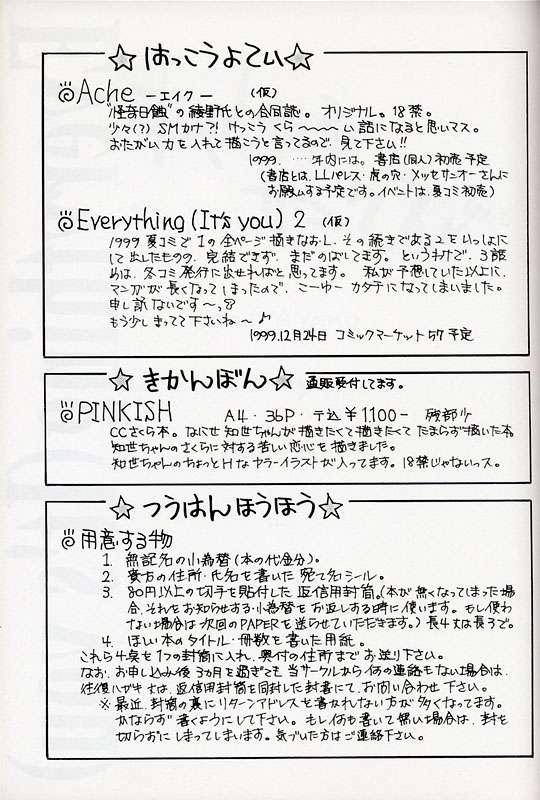 ☆はっこうよてい☆
Ache －エイク－ （仮）
"怪奇日蝕"の綾野氏との合同誌。オリジナル。18禁。
少々(?)SMカナ?! けっこうくら〜〜〜い話になると思いマス。
おたがい力を入れて描こうと言ってるので、見て下さい!!
1999. ‥‥年内には。書店(同人)初売予定
(書店とは、LLパレス・虎の穴・メッセサンオーさんに
お願いする予定です。イベントは、夏コミ初売)
Everything (It's you) 2 （仮）
1999夏コミで1の全ページ描きなおし、その続きである2をいっしょに
して出したものの、完結できず、まだのばしてます。というわけで、3部
めは、冬コミ発行に出せればと思ってます。私が予想していた以上に、
マンガが長くなってしまったので、こーゆーカタチになってしまいました。
申し訳ないです〜っ
もう少しまってて下さいね〜♪
1999.12月24日 コミックマーケット57予定
☆きかんぼん☆ 通販受付してます。
PINKISH A4・36P・〒込￥1100- 残部少
CCさくら本。なにせ知世ちゃんが描きたくて描きたくてたまらず描いた本。
知世ちゃんのさくらに対する苦しい恋心を描きました。
知世ちゃんのちょっとHなカラーイラストが入ってます。18禁じゃないっス。
☆つうはんほうほう☆
用意する物
1. 無記名の小為替(本の代金分)。
2. 貴方の住所・氏名を書いた宛て名シール。
3. 80円以上の切手を貼付した返信用封筒。(本が無くなってしまった場
合、それをお知らせする・小為替をお返しする時に使います。もし使わ
ない場合は次回のPAPERを送らせていただきます。)長4又は長3で。
4. ほしい本のタイトル・冊数を書いた用紙。
これら4点を1つの封筒に入れ、奥付の住所までお送り下さい。
なお、お申し込み後3ヵ月を過ぎても当サークルから何の連絡もない場合は、
往復ハガキ又は、返信用封筒を同封した封書にて、お問い合わせ下さい。
※最近、封筒の裏にリターンアドレスを書かれない方が多くなってます。
かならず書くようにして下さい。もし何も書いて無い場合は、封を
切らずにしまってしまいます。気づいた方はご連絡下さい。